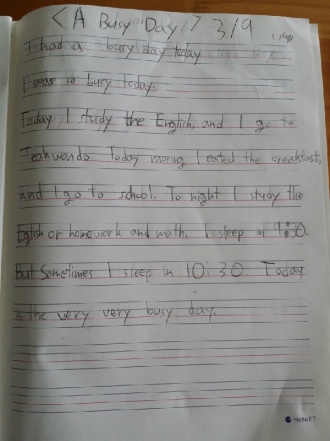 <A Busy Day> 3/9
I had a busy day today
I was so busy today.
Today I study the English, and I go to
Teakwondo Today moring I eated the breekfast,
and I go to school. To night I study the
English or homework and math. I sleep in 9:0.
but Sometimes I sleep in 10:30. Today
is the very very busy day.